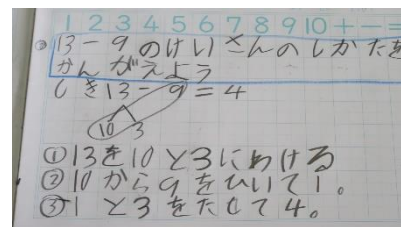 1 2 3 4 5 6 7 8 9 10 + - =
13-9のけいさんのしかたを
かんがえよう
しき13-9=4
10 3
①13を10と3にわける
②10から9をひいて1。
③1と3をたして4。